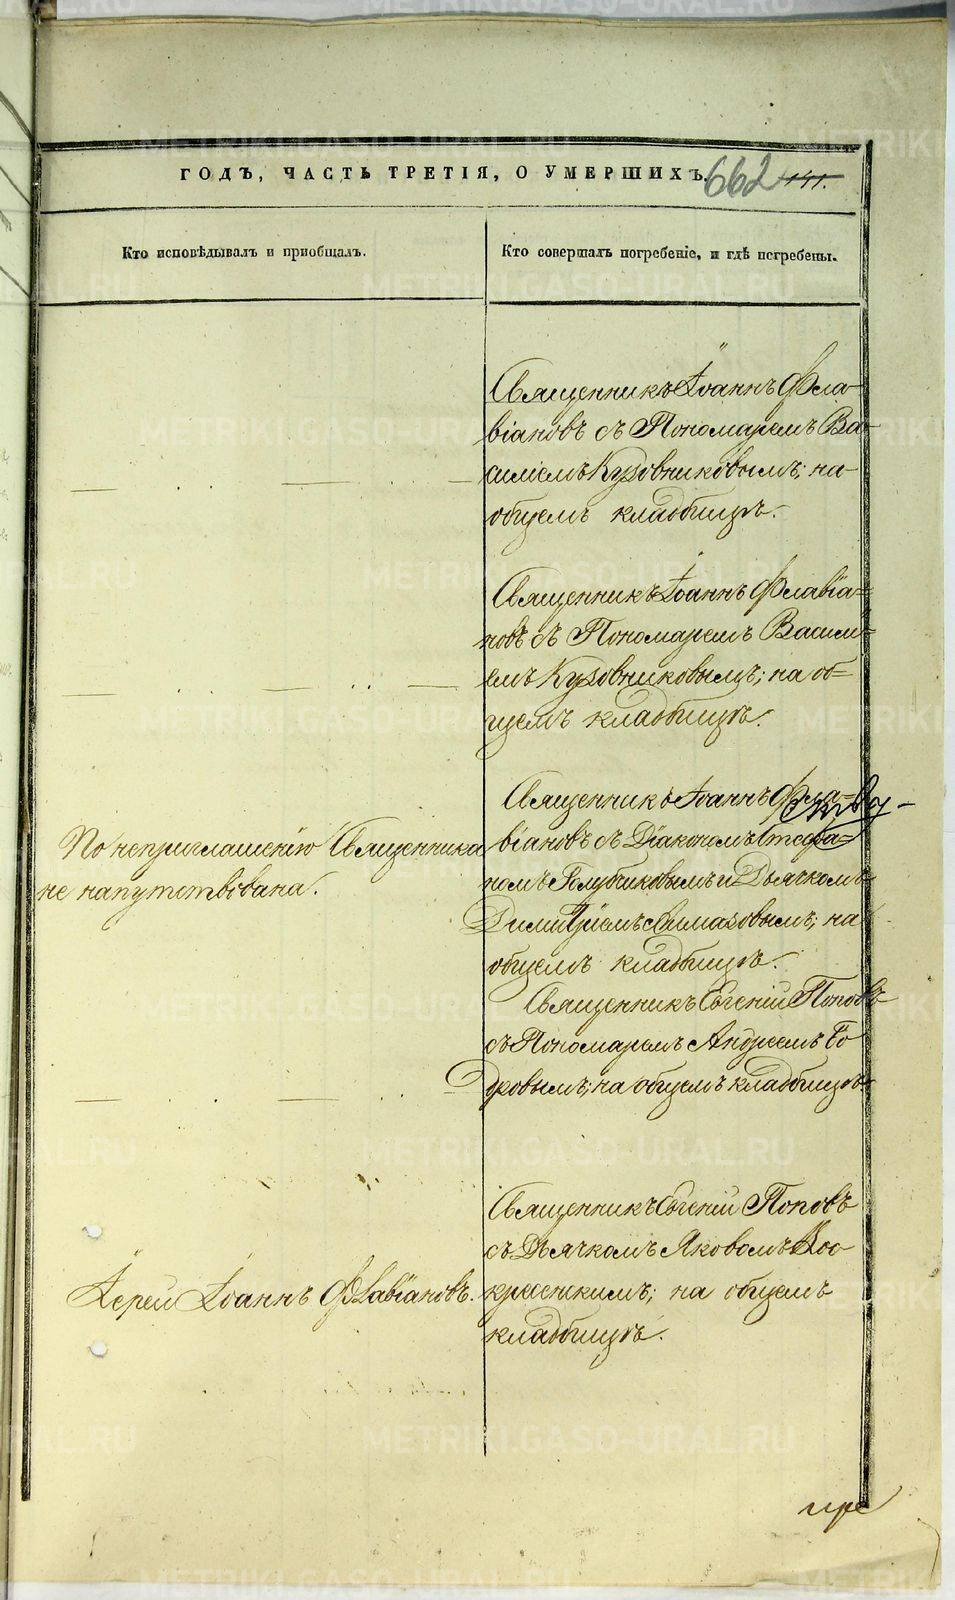 ГОДЪ, ЧАСТЬ ТРЕТІЯ, О УМЕРШИХЪ. 662 141.
Кто исповѣдывалъ и пріобщалъ.
Кто совершалъ погребеніе, и гдѣ погребены.
Священникъ Іоаннъ Фла-
віановъ съ Пономаремъ Ва-
силіемъ Кузовниковымъ; на
общемъ кладбищѣ.
Священникъ Іоаннъ Флавіа=
новъ съ Пономаремъ Василі=
емъ Кузовниковымъ; на об=
щемъ кладбищѣ.
По неприглашенію Священника
не напутствована.
Священникъ Іоаннъ Фла=
віановъ съ Діакономъ Стефа=
номъ Голубчиковымъ и Дьячкомъ
Димитріемъ; на
общемъ кладбищѣ.
Священникъ Евгеній Поповъ
съ Пономаремъ Андреемъ Бо
дровымъ; на общемъ кладбищѣ.
Іерей Іоаннъ Флавіановъ.
Священникъ Евгеній Поповъ
съ Дьячкомъ Яковомъ Вос
кресенскимъ; на общемъ
кладбищѣ.
METRIKI.GASO-URAL.RU